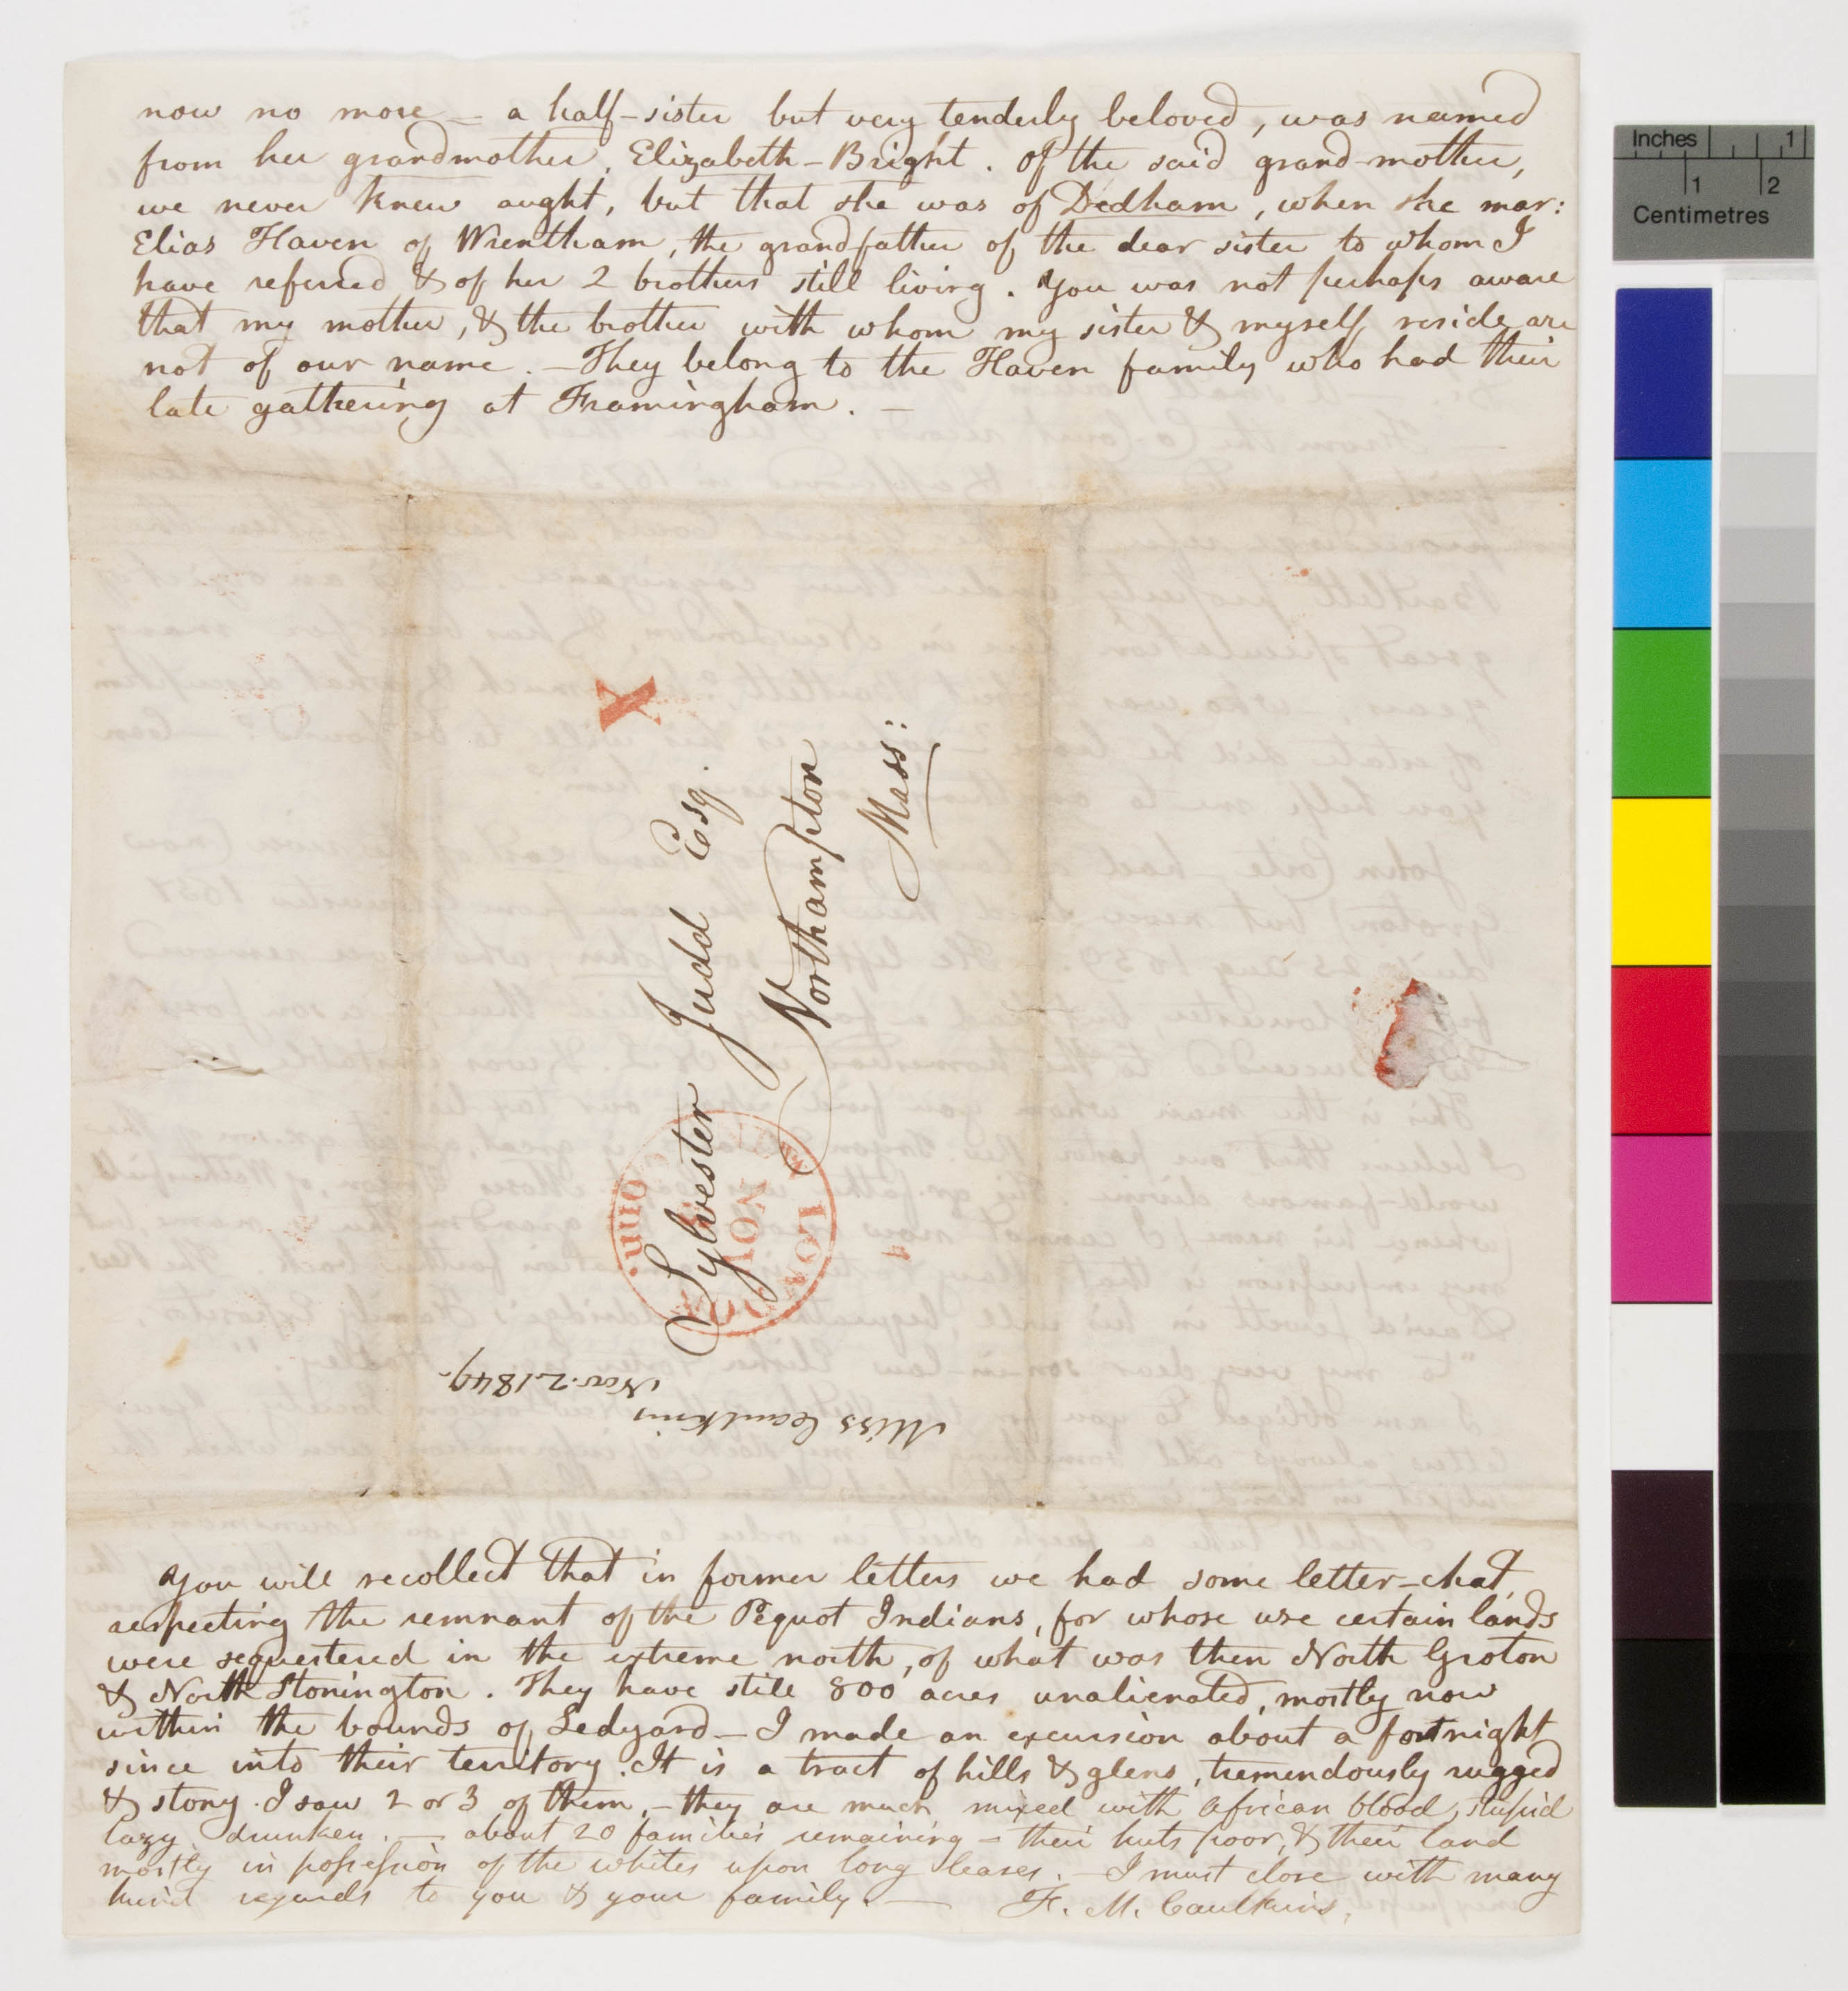 now no more – a half-sister but very tenderly beloved, was named
from her grandmother, Elizabeth-Bright. Of the said grand-mother,
we never knew aught, but that she was of Dedham, when she mar:
Elias Haven of Wrentham, the grandfather of the dear sister to whom I
have referred & of her 2 brothers still living. You was not perhaps aware
that my mother, & the brother with whom my sister & myself reside are
not of our name. – They belong to the Haven family who had their
late gathering at Framingham. –
X
Sylvester Judd Esq.
Northampton
Mass:
LOND
NOV
onn.
Miss Caulkins
Nov. 2. 1849.
You will recollect that in former letters we had some letter-chat,
respecting the remnant of the Pequot Indians, for whose use certain lands
were sequestered in the extreme north, of what was then North Groton
& North Stonington. They have still 800 acres unalienated, mostly now
within the bounds of Ledyard – I made an excursion about a fortnight
since into their territory. It is a tract of hills & glens, tremendously rugged
& stony. I saw 2 or 3 of them, – they are much mixed with African blood, stupid
lazy, drunken. – about 20 families remaining – their huts poor, & their land
mostly in possession of the whites upon long leases. – I must close with many
kind regards to you & your family. – F. M. Caulkins,
Inches 1
1 2
Centimetres